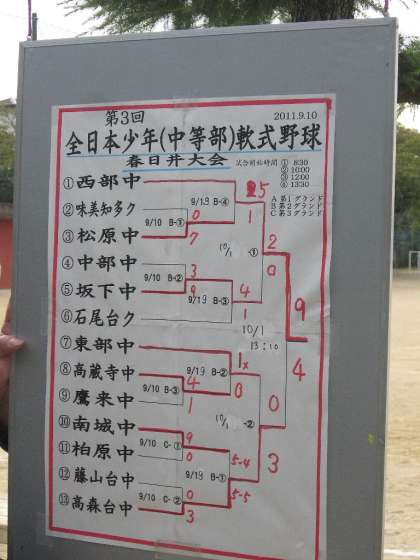 第3回
2011.9.10
全日本少年(中等部)軟式野球
春日井大会
試合開始時間 ① 8:30
② 10:00
③ 12:00
④ 13:30
A 第1グランド
B 第2グランド
C 第3グランド
①西部中
5
9/19 B-④
②味美知多ク
0
1
9/10 B-①
③松原中
7
2
10/1 -①
④中部中
3
0
9/10 B-②
⑤坂下中
9
4
9/19 B-③
⑥石尾台ク
1
9
10/1
13:10
4
⑦東部中
1x
9/19 B-②
⑧高蔵寺中
4
0
9/10 B-③
⑨鷹来中
1
0
10/1 -②
⑩南城中
9
3
9/10 C-①
⑪柏原中
0
5-4
9/19 B-①
⑫藤山台中
0
5-5
9/10 C-②
⑬高森台中
3